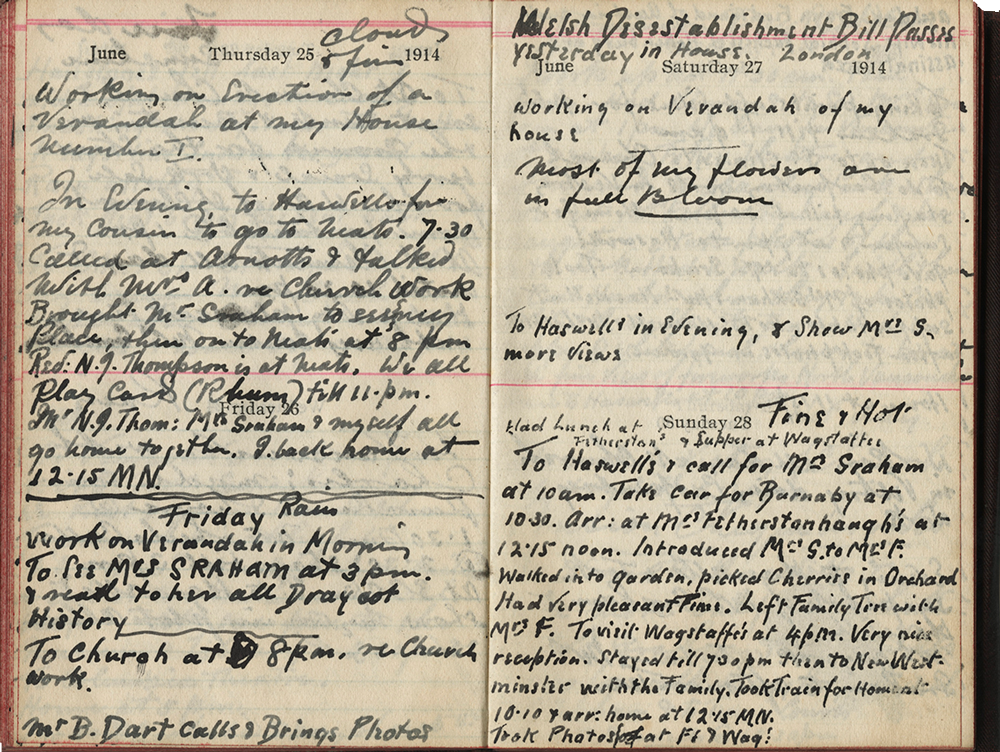 cloudy
June Thursday 25 & fine 1914
Working on Erection of a
Verandah at my House
Number I.
In Evening to Haswells for
my Cousin to go to Neats. 7-30
Called at Arnotts & talked
With Mrs A. re Church Work
Brought Mrs Graham to
Place, then on to Neats at 8 pm
Red: N.J. Thompson is at Neats. We all
Play Card (Rhum) till 11-pm.
Friday 26
Mr N.J. Thom: Mrs Graham & myself all
go home together. I back home at
12-15 M.N.
Friday Rain
Work on Verandah in Morning
To See MRS GRAHAM at 3 pm.
& read to her all Draycot
History
To Church at 8 pm. re Church
Work.
Mr B. Dart Calls & Brings Photos
Welsh Disestablishment Bill Passes
yesterday in House. London
June Saturday 27 1914
Working on Verandah of my
house
Most of my flowers are
in full Bloom
To Haswells in Evening, & Show Mrs G.
more Views
Sunday 28 Fine & Hot
Had Lunch at
Fetherston's & Supper at Wagstaffes
To Haswell's & call for Mrs Graham
at 10 am. Take car for Burnaby at
10-30. Arr: at Mrs Fetherstonhaugh's at
12-15 noon. Introduced Mrs G. to Mrs F.
Walked into garden, picked Cherries in Orchard
Had very pleasant Time. Left Family Tree with
Mrs F. To visit Wagstaffe's at 4 pm. Very nice
reception. Stayed till 7-30 pm then to New West-
minster with the Family. Took Train for Home at
10-10 & arr: home at 12-15 MN.
Took Photos of at Fe & Wag: